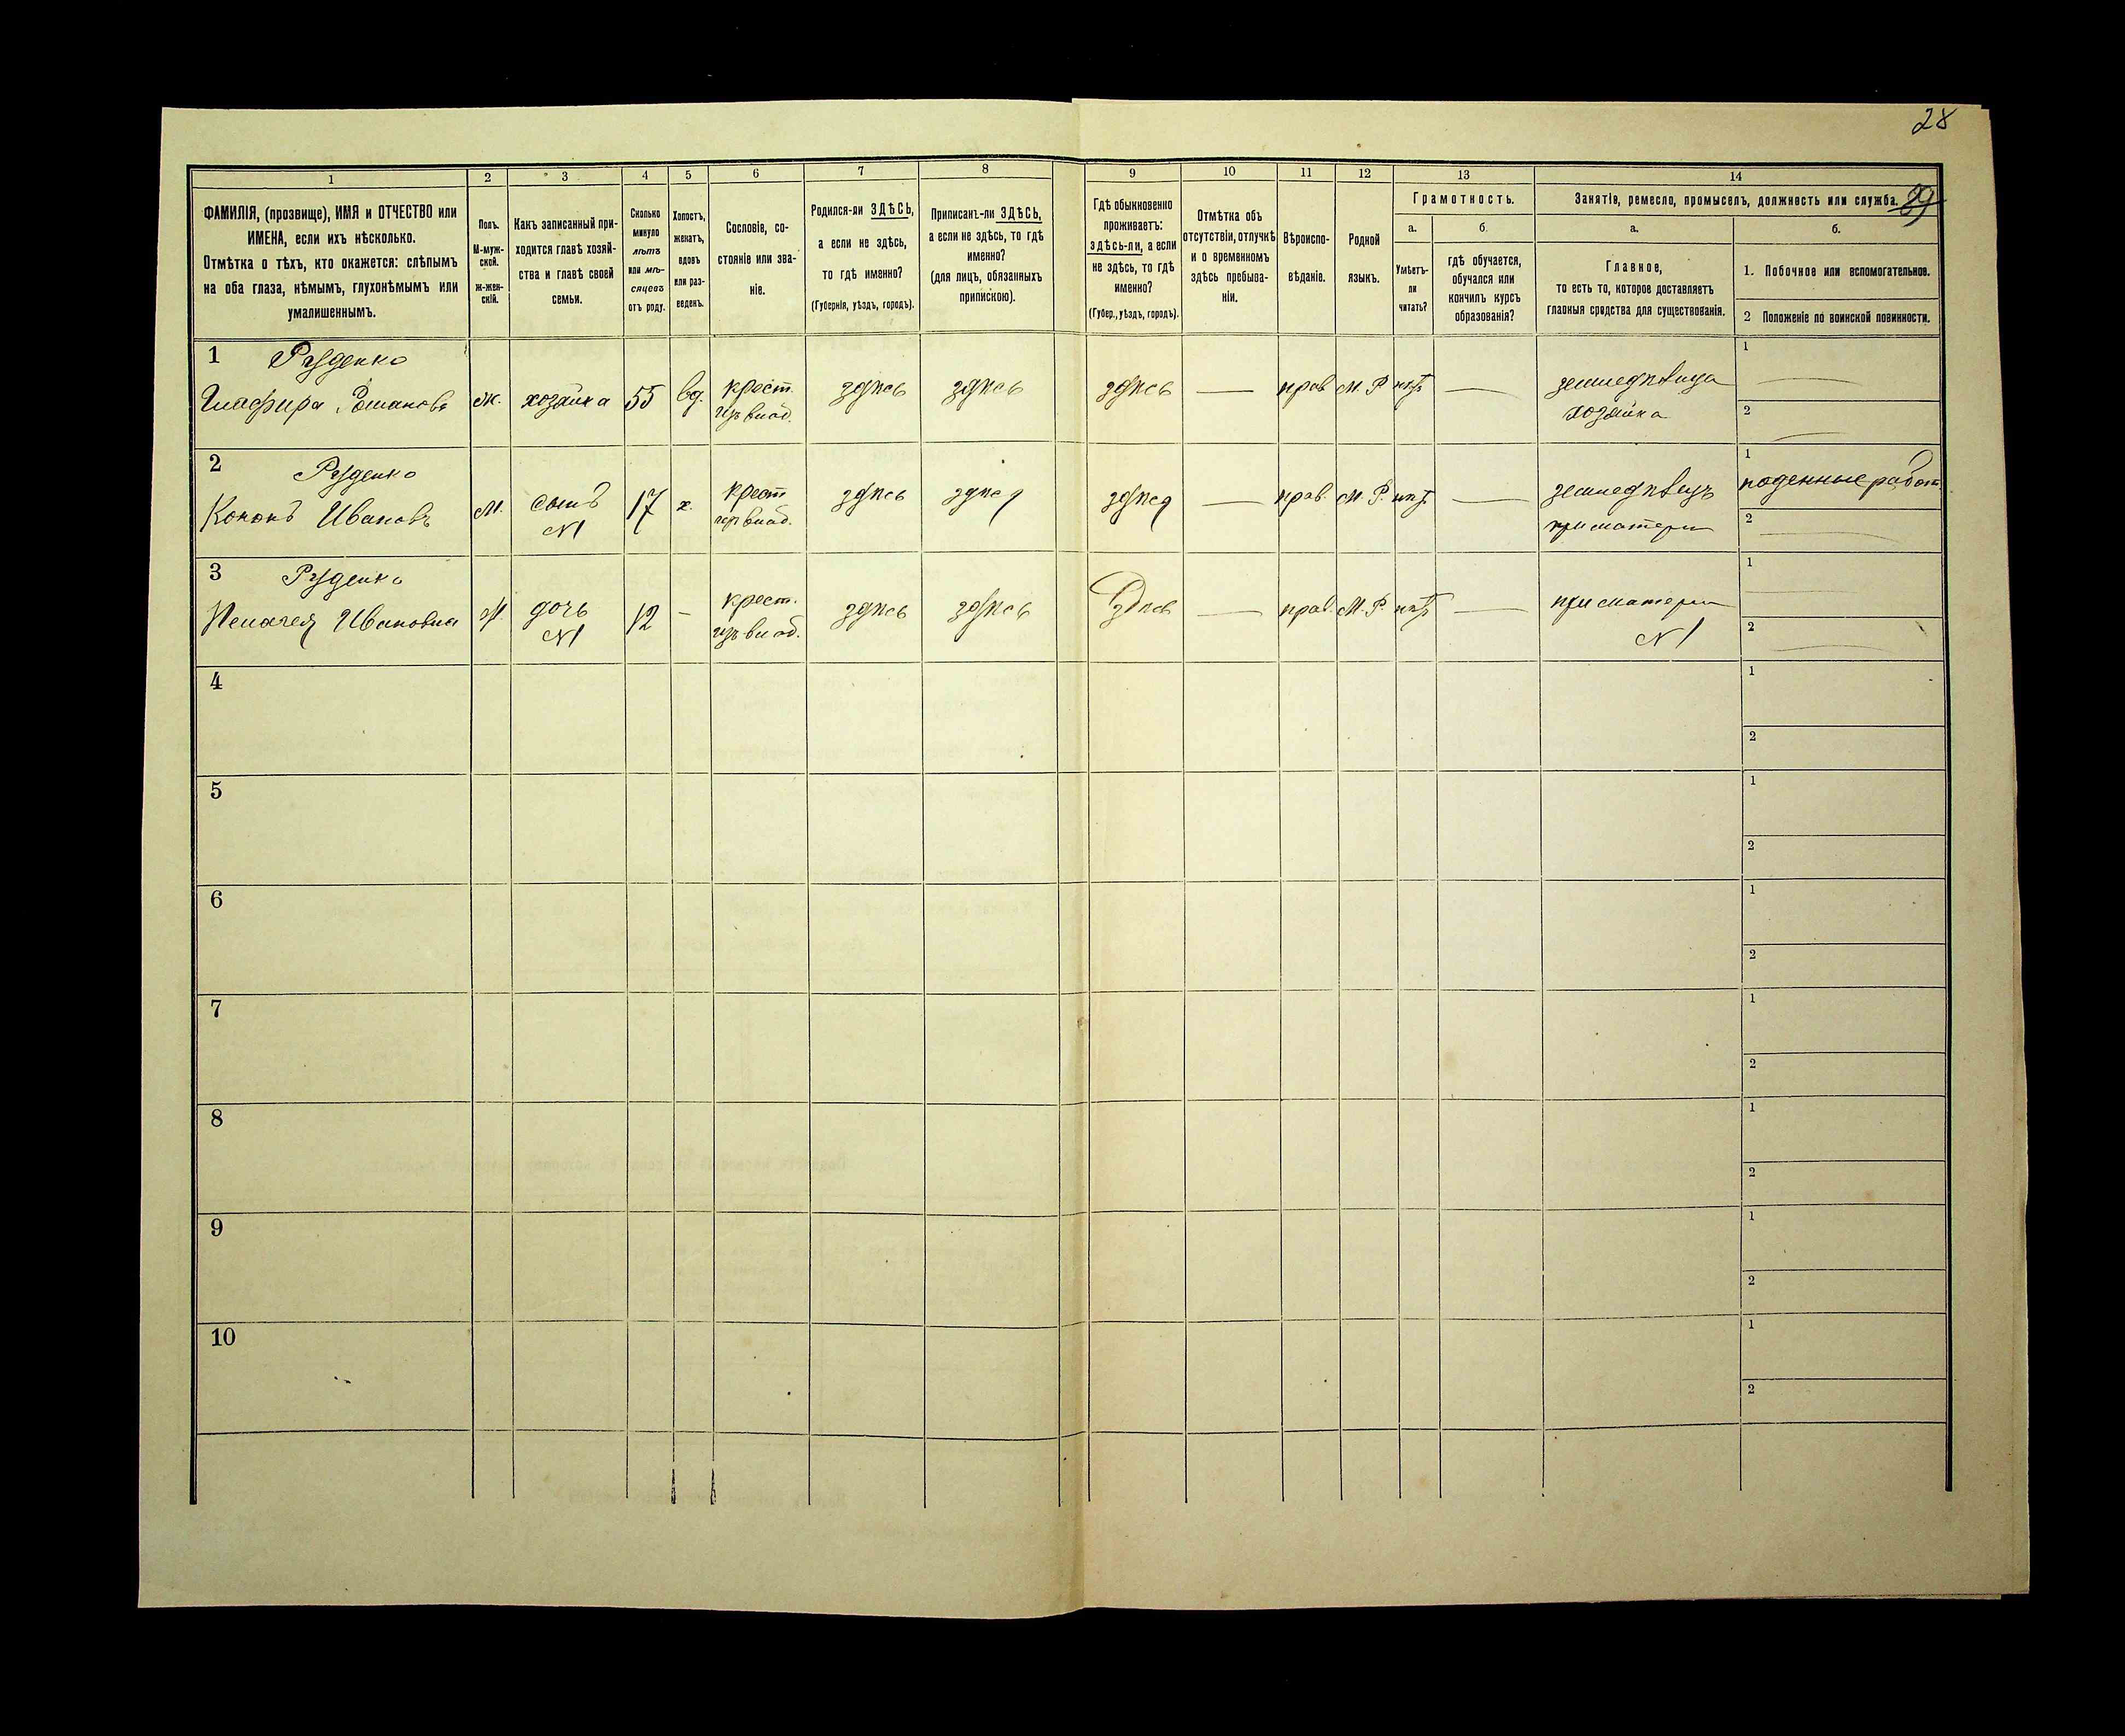 28
1 2 3 4 5 6 7 8 9 10 11 12 13 14
ФАМИЛІЯ, (прозвище), ИМЯ и ОТЧЕСТВО или
ИМЕНА, если ихъ нѣсколько.
Отмѣтка о тѣхъ, кто окажется: слѣпымъ
на оба глаза, нѣмымъ, глухонѣмымъ или
умалишеннымъ.
Полъ.
М-муж-
ской.
ж-жен-
скій.
Какъ записанный при-
ходится главѣ хозяй-
ства и главѣ своей
семьи.
Сколько
минуло
лѣтъ
или мѣ-
сяцевъ
отъ роду.
Холостъ,
женатъ,
вдовъ
или раз-
веденъ.
Сословіе, со-
стояніе или зва-
ніе.
Родился-ли ЗДѢСЬ,
а если не здѣсь,
то гдѣ именно?
(Губернія, уѣздъ, городъ).
Приписанъ-ли ЗДѢСЬ,
а если не здѣсь, то гдѣ
именно?
(для лицъ, обязанныхъ
припискою).
Гдѣ обыкновенно
проживаетъ:
здѣсь-ли, а если
не здѣсь, то гдѣ
именно?
(Губер., уѣздъ, городъ).
Отмѣтка объ
отсутствіи, отлучкѣ
и о временномъ
здѣсь пребыва-
ніи.
Вѣроиспо-
вѣданіе.
Родной
языкъ.
Грамотность.
а.
Умѣетъ-
ли
читать?
б.
гдѣ обучается,
обучался или
кончилъ курсъ
образованія?
Занятіе, ремесло, промыселъ, должность или служба.
а.
Главное,
то есть то, которое доставляетъ
главныя средства для существованія.
б.
1. Побочное или вспомогательное.
2 Положеніе по воинской повинности.
1 Руденко
Глафира Романова ж. хозяйка 55 вд. крест. изъ влад. здѣсь здѣсь здѣсь — прав М. Р нѣтъ — земледѣлица хозяйка
1 —
2 —
2 Руденко
Кононъ Ивановъ м. сынъ N1 17 х. крест изъ влад. здѣсь здѣсь здѣсь — прав. М. Р. нѣтъ — земледѣлецъ при матери
1 поденные работ.
2 —
3 Руденко
Пелагея Ивановна ж. дочь N1 12 — крест. изъ влад. здѣсь здѣсь Здѣсь — прав. М. Р. нѣтъ — при матери N1
1 —
2 —
4
1
2
5
1
2
6
1
2
7
1
2
8
1
2
9
1
2
10
1
2